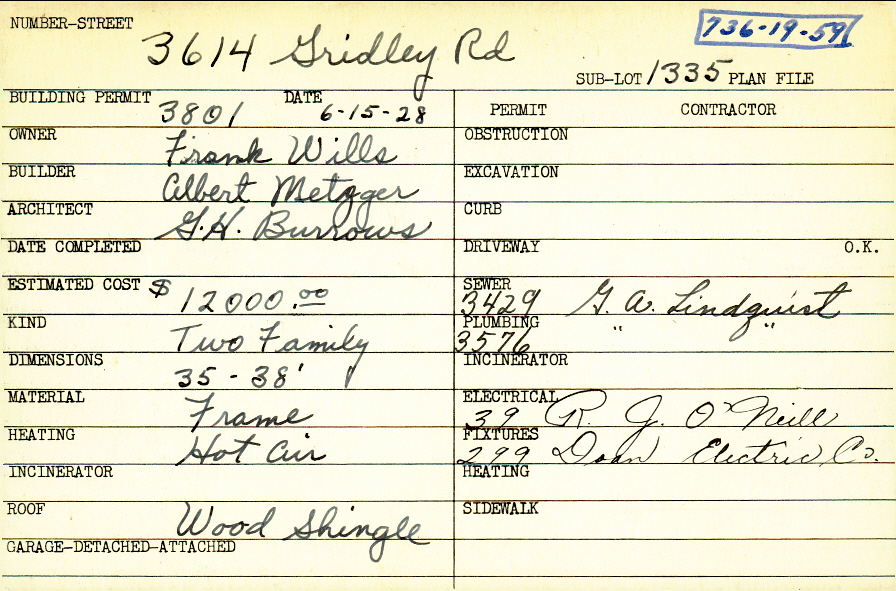 NUMBER-STREET
3614 Gridley Rd
736-19-59
SUB-LOT 1335 PLAN FILE
BUILDING PERMIT 3801 DATE 6-15-28
OWNER Frank Wills
BUILDER Albert Metzger
ARCHITECT G.H. Burrows
DATE COMPLETED
ESTIMATED COST $ 12000.00
KIND Two Family
DIMENSIONS 35 - 38'
MATERIAL Frame
HEATING Hot Air
INCINERATOR
ROOF Wood Shingle
GARAGE-DETACHED-ATTACHED
PERMIT CONTRACTOR
OBSTRUCTION
EXCAVATION
CURB
DRIVEWAY O.K.
SEWER 3429 G. A. Lindquist
PLUMBING 3576 " "
INCINERATOR
ELECTRICAL 39 R. J. O'Neill
FIXTURES 299 Doan Electric Co.
HEATING
SIDEWALK